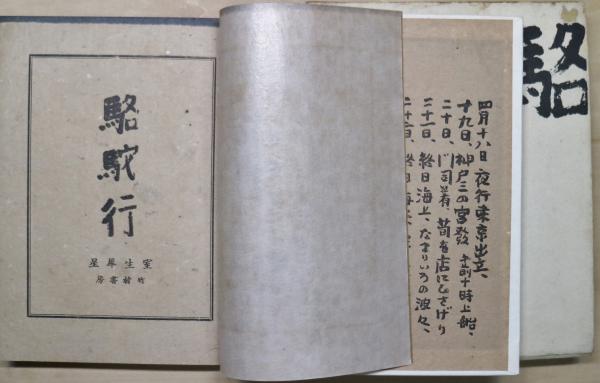 駱駝行
室生犀星
竹村書房
四月十八日 夜行東京出立、
十九日、神戸三の宮發 午前十時上船、
二十日、門司着、筍を店にひさげり
二十一日、終日海上、なまりいろの波々、
二十二日、終日海上
駱